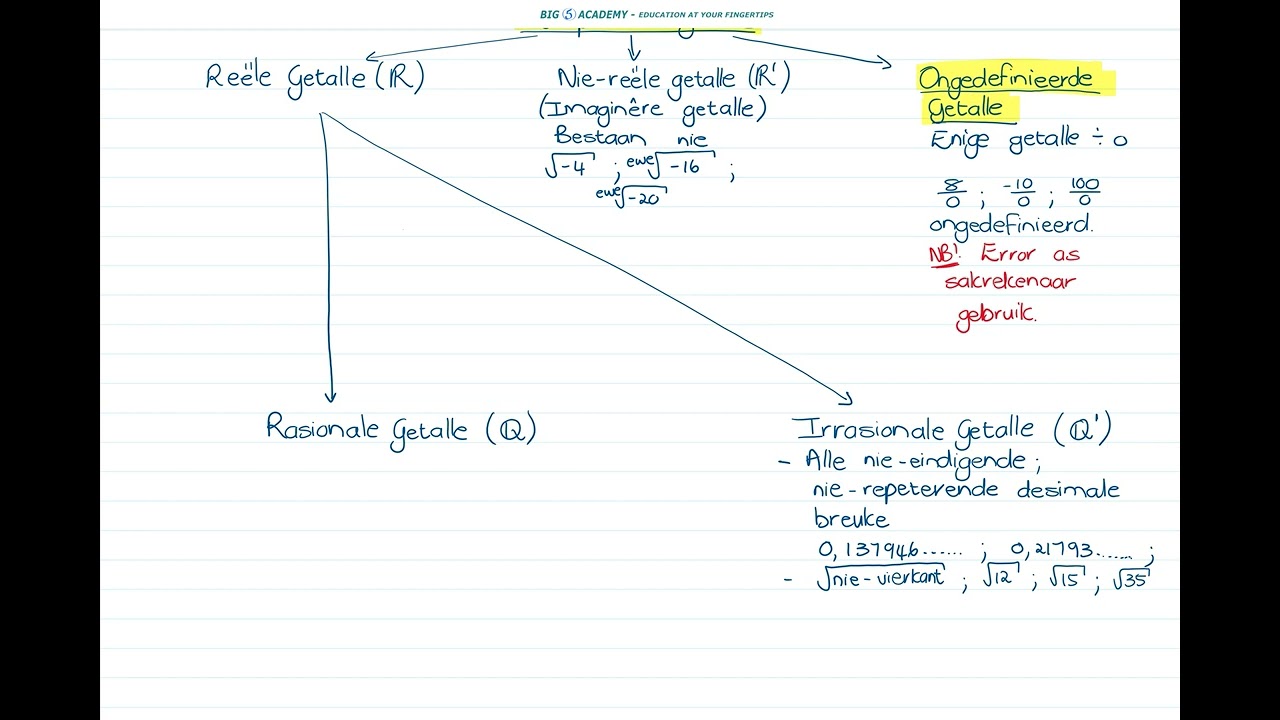 BIG 5 ACADEMY - EDUCATION AT YOUR FINGERTIPS
Reële Getalle (ℝ)
Nie-reële getalle (ℝ')
(Imaginêre getalle)
Bestaan nie
√-4 ; ewe√-16 ;
ewe√-20
Ongedefinieerde
Getalle
Enige getalle ÷ 0
8/0 ; -10/0 ; 100/0
ongedefinieerd.
NB! Error as
sakrekenaar
gebruik.
Rasionale Getalle (ℚ)
Irrasionale Getalle (ℚ')
- Alle nie-eindigende ;
nie-repeterende desimale
breuke
0,137946...... ; 0,21793...... ;
- √nie-vierkant ; √12 ; √15 ; √35